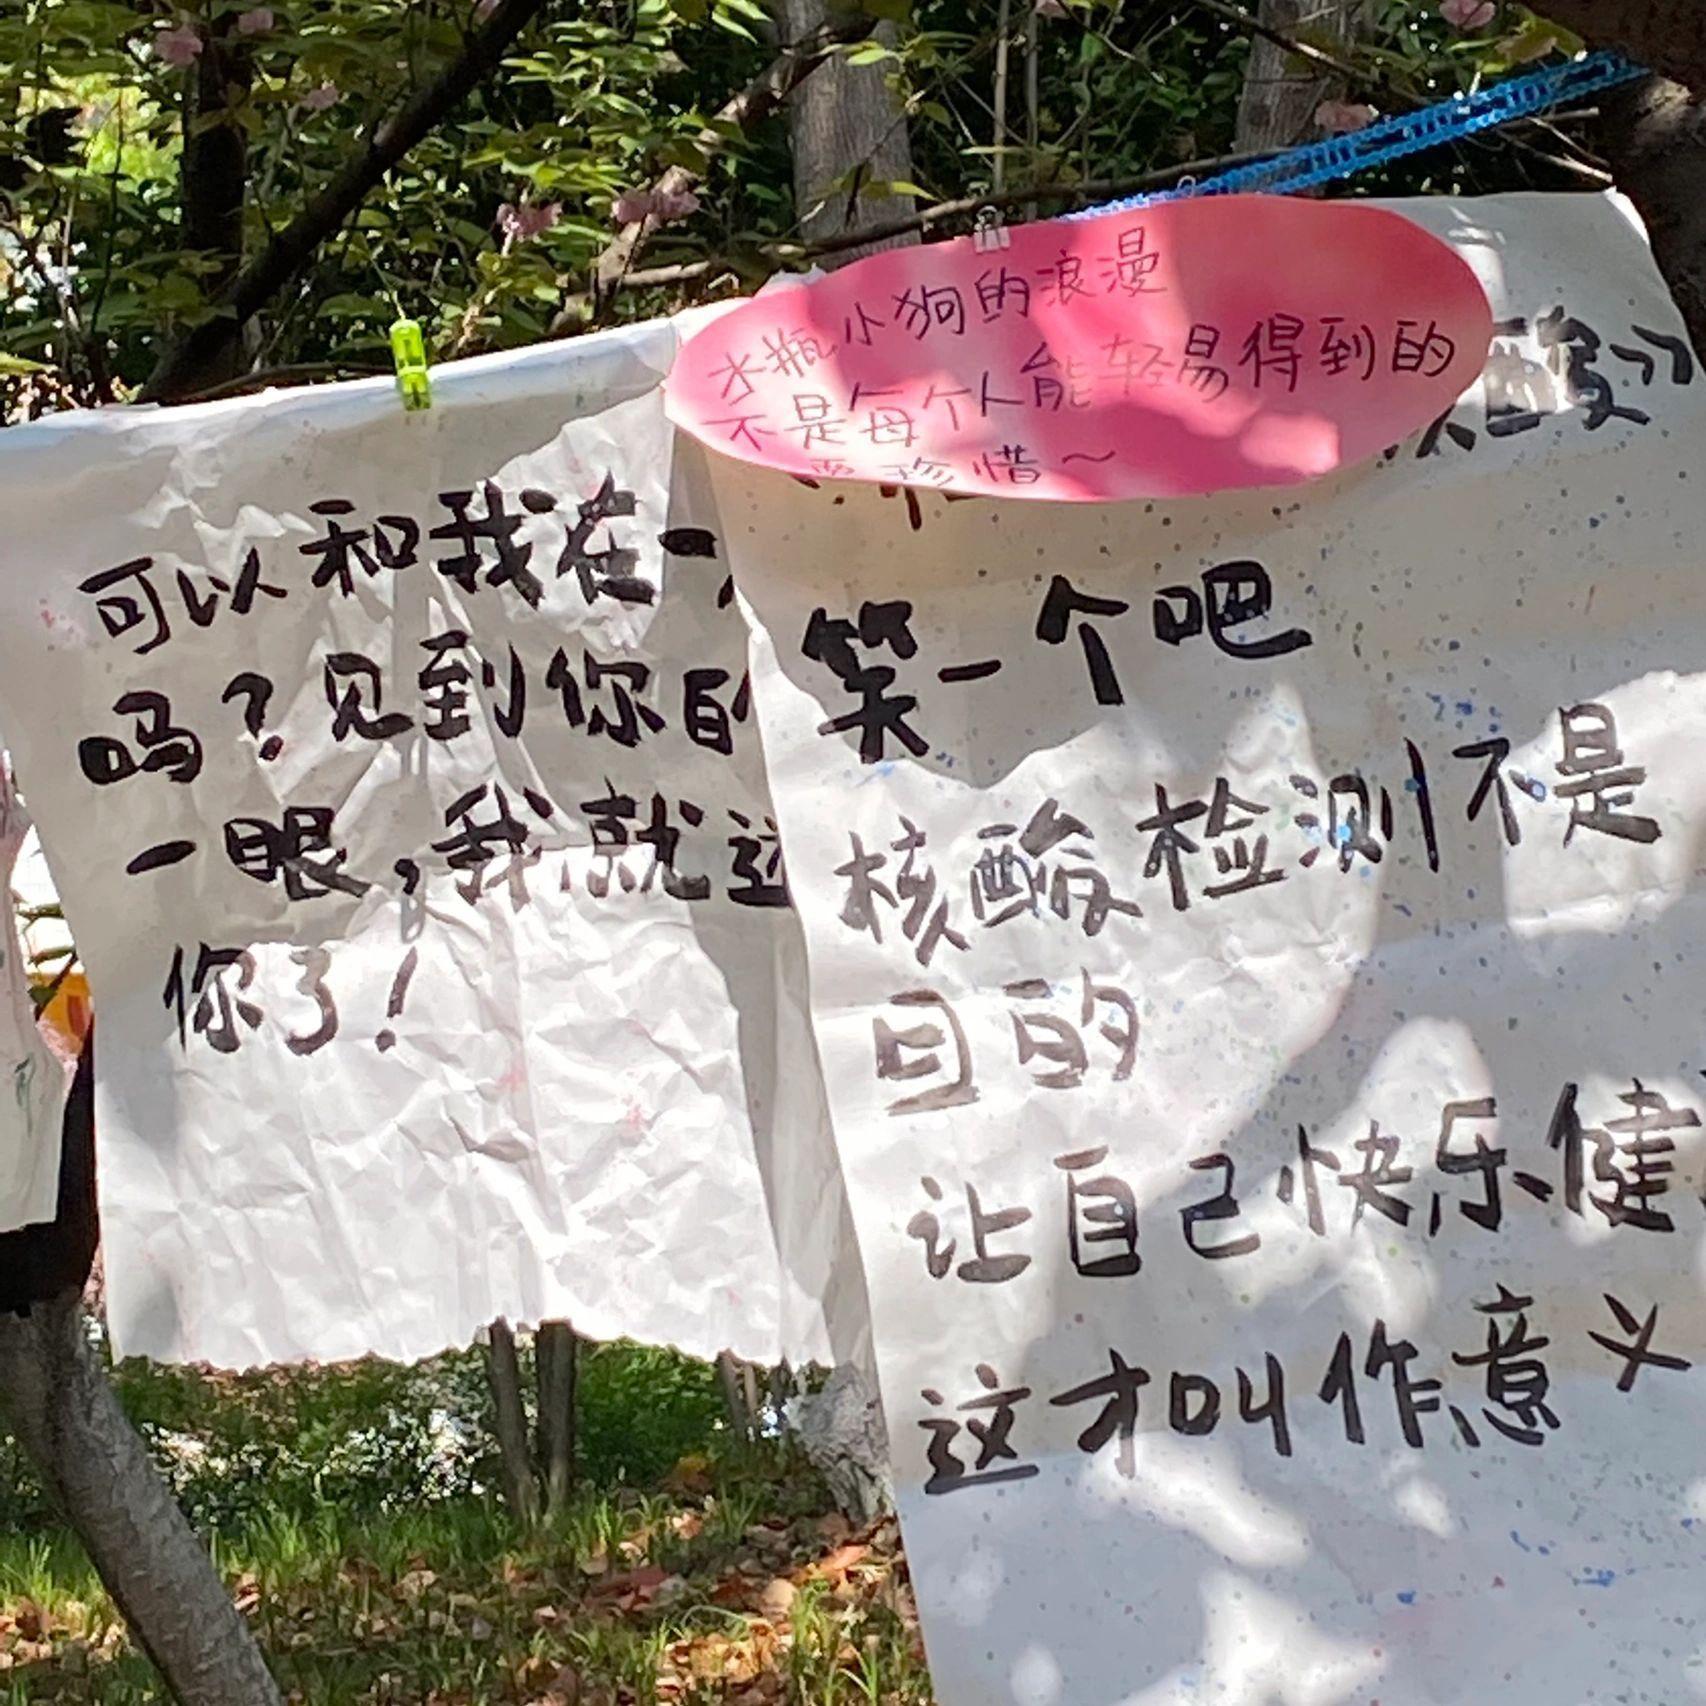 水瓶小狗的浪漫
不是每个人能轻易得到的
要珍惜~
可以和我在一
吗?见到你的
一眼,我就这
你了!
酸》
笑一个吧
核酸检测不是
目的
让自己快乐健
这才叫作意义